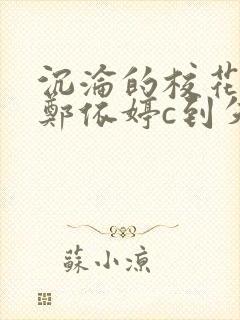 沉淪的校花
鄭依婷c到
蘇小凉